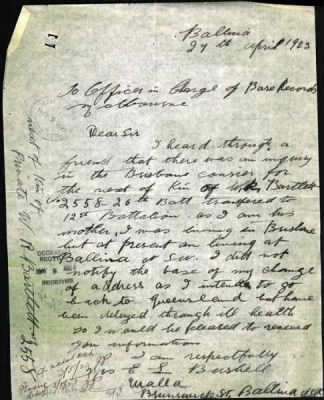 Ballina
27th April 1923
To Officer in Charge of Base Records
Melbourne
Dear Sir
I heard through a
friend that there was an inquiry
in the Brisbane courier for
the next of Kin of W. R. Bartlett
2558 26th Batt transfered to
12st Battalion as I am his
mother, I was living in Brisbane
but at present am living at
Ballina I did not
notify the base of my change
of address as I intende to go
back to Queensland but have
been delayed through ill health
so I would be pleased to received
you information
I am respectfully
Mrs E
Ualla
Brunswick St. Ballina NSW
next of Kin of
Private W. R. Bartlett 2558
RECEIVED